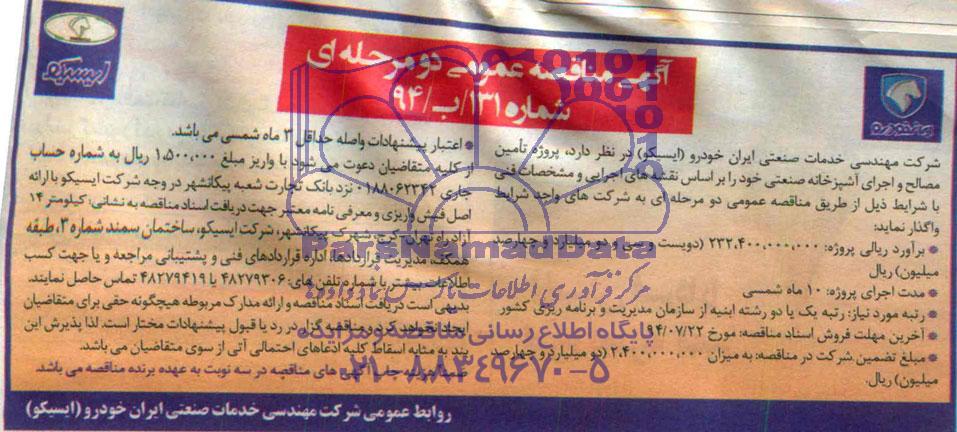 آگهی مناقصه عمومی دو مرحله ای
شماره ۱۳۱/ب/۹۴
ایسیکو
شرکت مهندسی خدمات صنعتی ایران خودرو (ایسیکو) در نظر دارد، پروژه تأمین
مصالح و اجرای آشپزخانه صنعتی خود را بر اساس نقشه های اجرایی و مشخصات فنی
با شرایط ذیل از طریق مناقصه عمومی دو مرحله ای به شرکت های واجد شرایط
واگذار نماید:
* برآورد ریالی پروژه: ۲۳۲،۴۰۰،۰۰۰،۰۰۰ (دویست و سی و دو میلیارد و چهارصد
میلیون) ریال
* مدت اجرای پروژه: ۱۰ ماه شمسی
* رتبه مورد نیاز: رتبه یک یا دو رشته ابنیه از سازمان مدیریت و برنامه ریزی کشور
* آخرین مهلت فروش اسناد مناقصه: مورخ ۹۴/۰۷/۲۲
* مبلغ تضمین شرکت در مناقصه: به میزان ۲،۴۰۰،۰۰۰،۰۰۰ (دو میلیارد و چهارصد
میلیون) ریال.
* اعتبار پیشنهادات واصله حداقل ۳ ماه شمسی می باشد.
از کلیه متقاضیان دعوت می شود با واریز مبلغ ۱،۵۰۰،۰۰۰ ریال به شماره حساب
جاری ۰۱۸۸۰۶۲۳۴۲ نزد بانک تجارت شعبه پیکانشهر در وجه شرکت ایسیکو با ارائه
اصل فیش واریزی و معرفی نامه معتبر جهت دریافت اسناد مناقصه به نشانی: کیلومتر ۱۴
آزادراه تهران-کرج، شهرک پیکانشهر، شرکت ایسیکو، ساختمان سمند شماره ۳، طبقه
همکف، مدیریت قراردادها، اداره قراردادهای فنی و پشتیبانی مراجعه و یا جهت کسب
اطلاعات بیشتر با شماره تلفن های: ۴۸۲۷۹۳۰۶ یا ۴۸۲۷۹۴۱۹ تماس حاصل نمایند.
بدیهی است دریافت اسناد مناقصه و ارائه مدارک مربوطه هیچگونه حقی برای متقاضیان
ایجاد نخواهد کرد و مناقصه گزار در رد یا قبول پیشنهادات مختار است. لذا پذیرش این
بند به مثابه اسقاط کلیه ادعاهای احتمالی آتی از سوی متقاضیان می باشد.
هزینه چاپ آگهی های مناقصه در سه نوبت به عهده برنده مناقصه می باشد.
روابط عمومی شرکت مهندسی خدمات صنعتی ایران خودرو (ایسیکو)
ParsNamadData
پایگاه اطلاع رسانی مناقصه و مزایده
۰۲۱-۸۸۳۴۹۶۷۰-۵